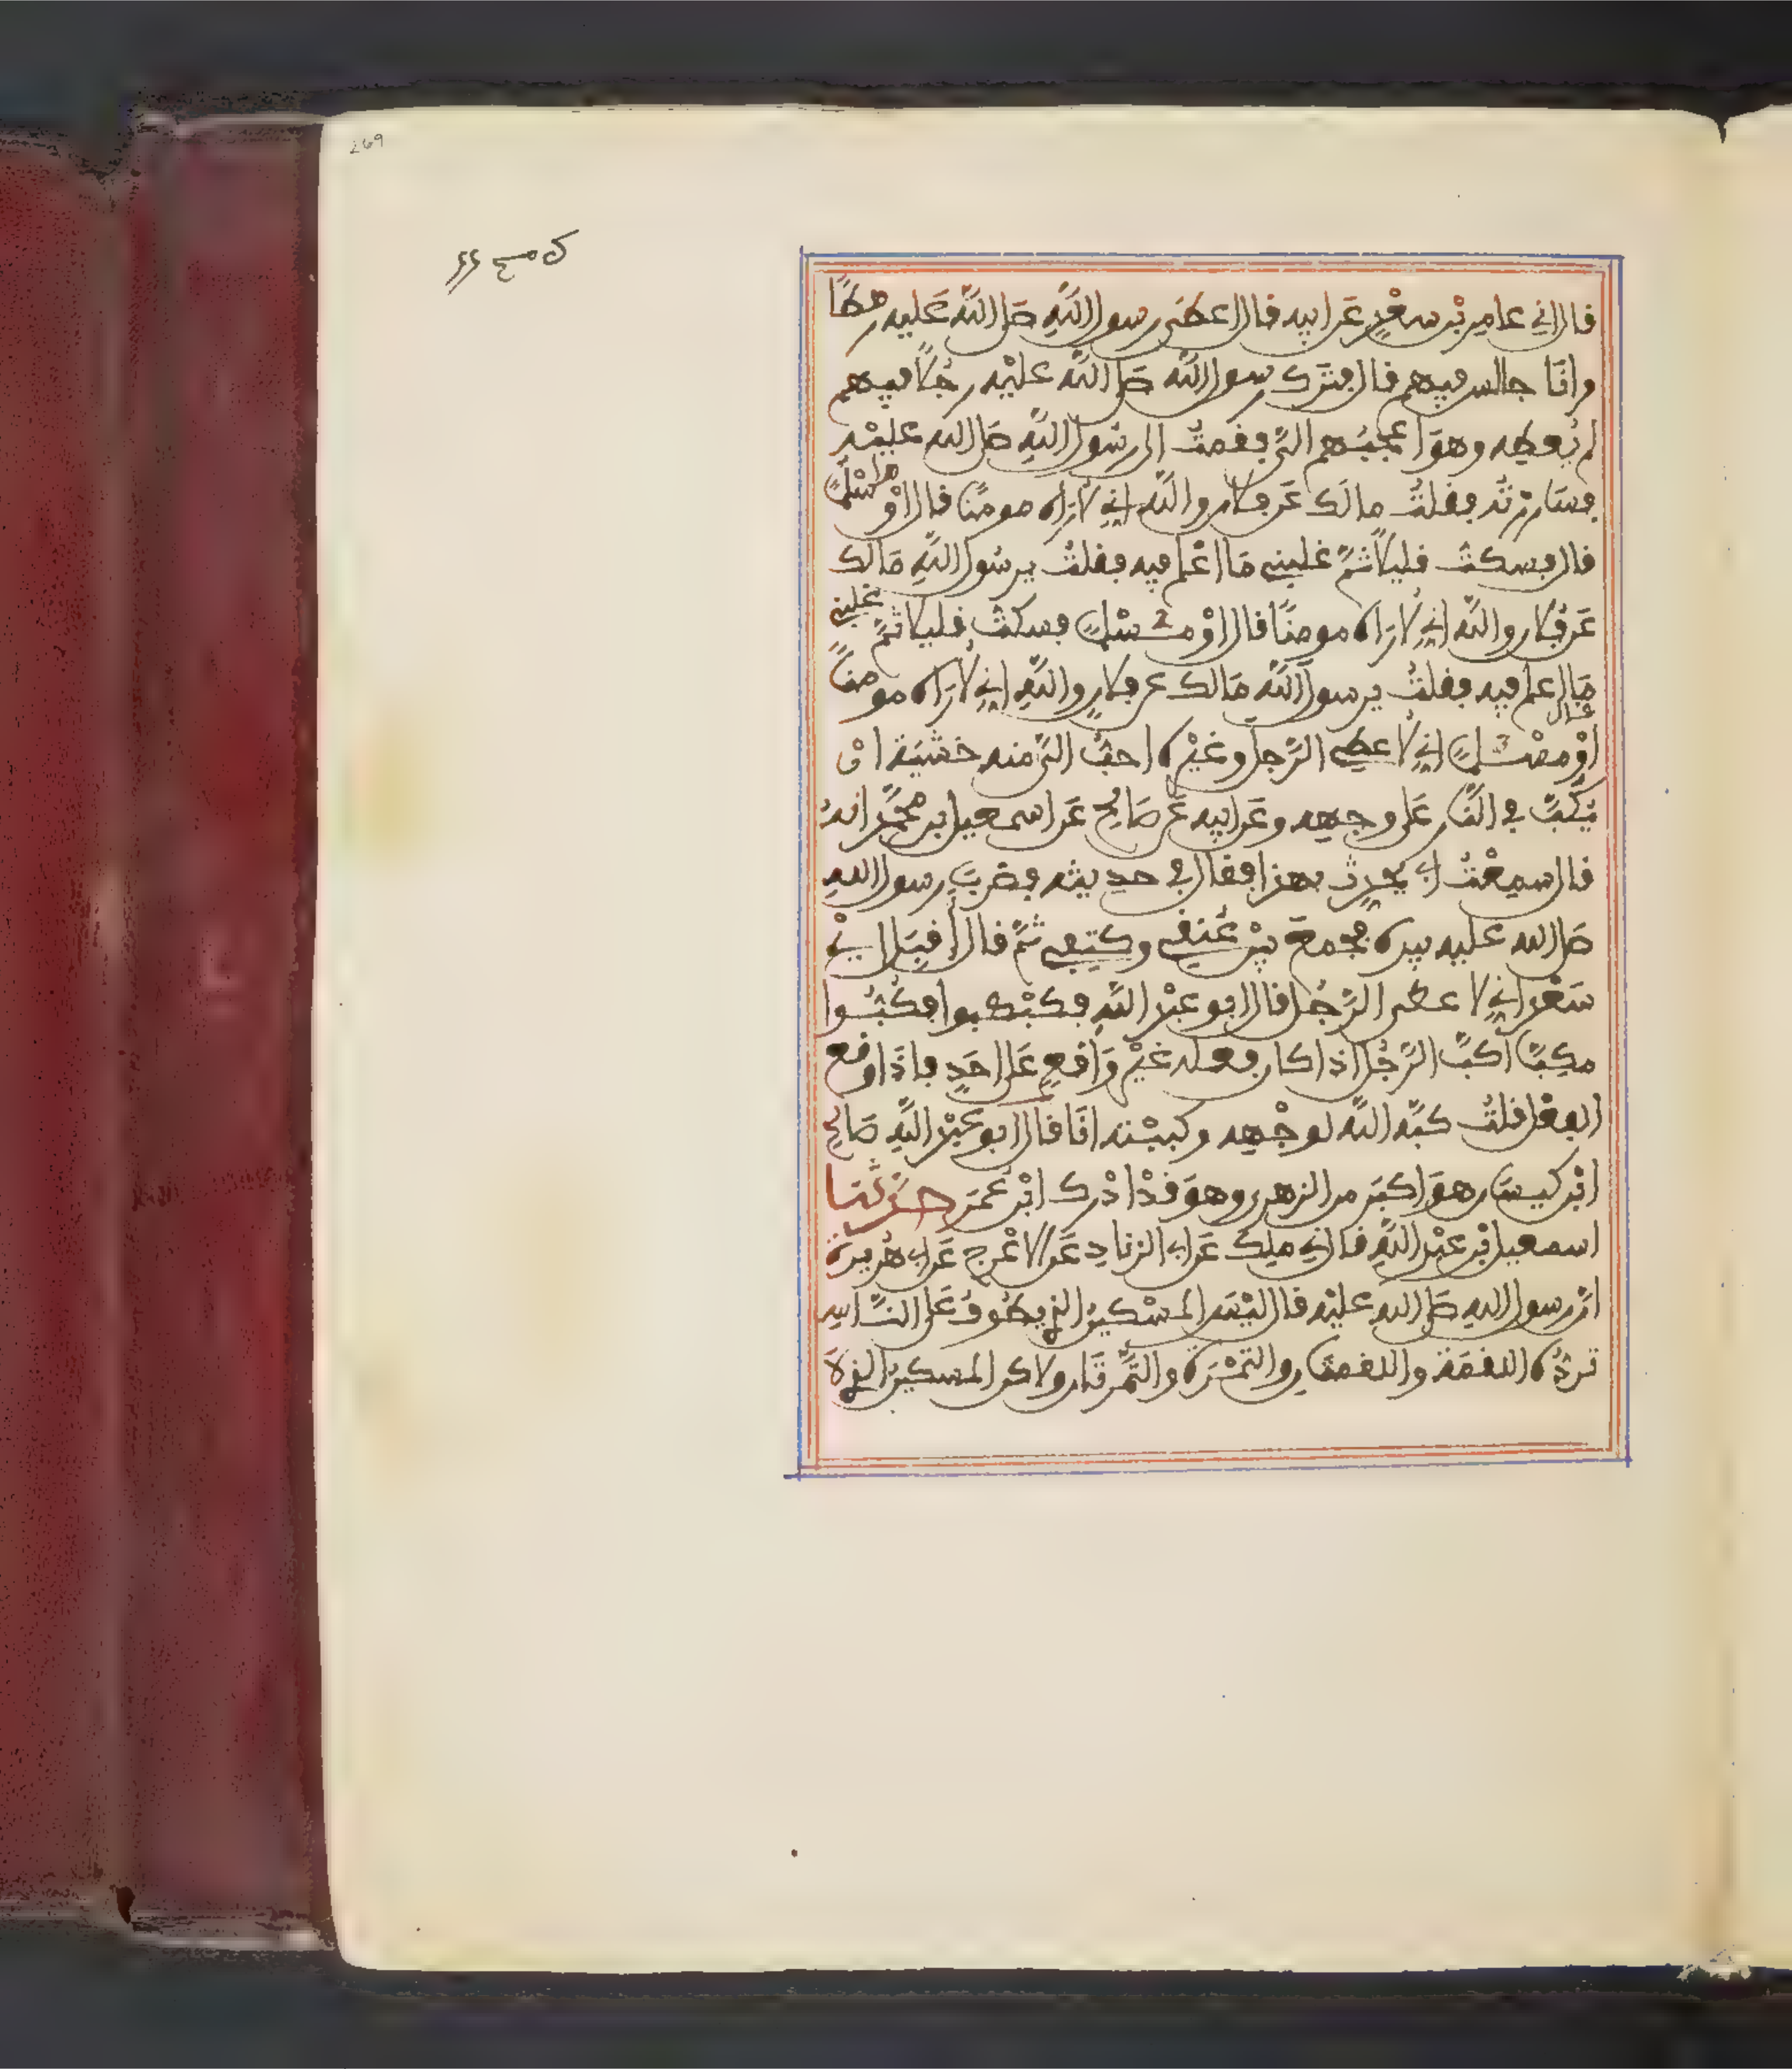 269
قال اني عامر بْن سعْدٍ عَن ابيه قال اعطى رسول اللَّهِ صَلى اللَّه عَليه رهطًا
وانَا جالس فيهم قال فتَرك رسول اللَّه صَلى اللَّه عليْه رجُلًا فيهم
لم يُعطِه وهوَ اعجبُهم اليَّ فقمتُ الى رسُول اللَّهِ صَلى الله عليْه
فسَارَرْتُه فقلتُ مالَك عَن فلانٍ واللَّه اِنِّي لأرَاه مومنًا قال أوْ مسْلمًا
قال فسكتُّ قليلًا ثمَّ غلبني مَا اعْلم فيه فقلتُ يرسُول اللَّهِ مَالك
عَن فُلان واللَّه اِنّي لأرَاه مومنًا قال اوْ مسْلمًا فسكتُّ قليلا ثمَّ غلبني
مَا اعلم فيه فقلتُ يرسول اللَّه مَالك عن فلانٍ واللَّهِ اِنِّي لأرَاه مومنًا
قال
اوْ مسْلمًا اِنِّي لأعطي الرَّجل وغيْره احبُّ اليَّ منه خشْيَة ان
يُكَبَّ في النَّار عَلى وجهه وعَن ابيه عَن صَالح عَن اسمعيل بن محمَّد انهُ
قال سمعْتُ ابي يحدث بهذا فقال في حديثه فضربَ رسول الله
صَلى الله عليه بيده فجمعَ بيْن عُنقي وكتفي ثمَّ قال أقبل ايْ
سَعْد اني لا عطي الرَّجُل قال ابو عبْد اللَّهِ فكبْكبوا فكُبُّوا
مكبًّا أكبَّ الرَّجُل اذا كان فعله غيْر وَاقعٍ عَلى احَدٍ فاذَا وقع
الفعْل قلتُ كبَّه اللَّه لوجْهه وكببْته انَا قال ابو عبْد اللَّهِ صَالح
ابْن كيسَان هوَ اكبَر من الزهري وهوَ قدْ ادْرك ابْن عُمَر حدثنا
اسمعيل بْن عبْد اللَّهِ قال اني ملك عَن ابي الزناد عَن الاعْرج عَن ابي هُريره
انَّ رسول الله صَلى الله عليْه قال ليْسَ المسْكينُ الذي يطُوفُ عَلى النَّاسِ
تردُّه اللقمَة واللقمتَان والتمْرَة والتَّمْرتَان ولاكن المسكين الذي لَا